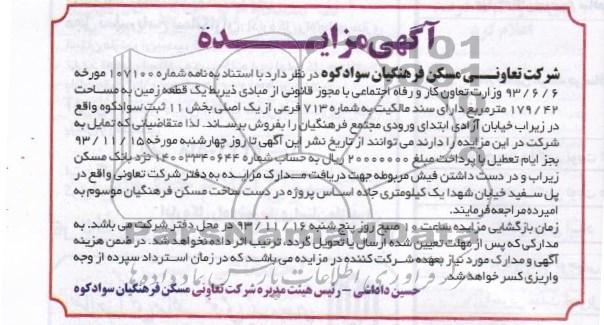 آگهی مزایـــده
شرکت تعاونـــی مسکن فرهنگیان سوادکوه در نظر دارد با استناد به نامه شماره ۱۰۷۱۰۰ مورخه
۹۳/۶/۶ وزارت تعاون کار و رفاه اجتماعی با مجوز قانونی از مبادی ذیربط یک قطعه زمین به مساحت
۱۷۹/۴۲ مترمربع دارای سند مالکیت به شماره ۷۱۳ فرعی از یک اصلی بخش ۱۱ ثبت سوادکوه واقع
در زیراب خیابان آزادی ابتدای ورودی مجتمع فرهنگیان را بفروش برساند. لذا متقاضیانی که تمایل به
شرکت در این مزایده را دارند می توانند از تاریخ نشر این آگهی تا روز چهارشنبه مورخه ۹۳/۱۱/۱۵
بجز ایام تعطیل با پرداخت مبلغ ۲۰۰۰۰۰۰۰ ریال به حساب شماره ۱۴۰۰۳۳۴۰۶۴۴ نزد بانک مسکن
زیراب و در دست داشتن فیش مربوطه جهت دریافت مـدارک مزایـده به دفتر شرکت تعاونی واقع در
پل سفید خیابان شهدا یک کیلومتری جاده اساس پروژه در دست ساخت مسکن فرهنگیان موسوم به
امیرده مراجعه فرمایند.
زمان بازگشایی مزایده ساعت ۱۰ صبح روز پنج شنبه ۹۳/۱۱/۱۶ در محل دفتر شرکت می باشد. به
مدارکی که پس از مهلت تعیین شده ارسال یا تحویل گردد، ترتیب اثر داده نخواهد شد. در ضمن هزینه
آگهی و مدارک مورد نیاز بعهده شرکت کننده در مزایده می باشد که در زمان استرداد سپرده از وجه
واریزی کسر خواهد شد.
حسین داداشی - رئیس هیئت مدیره شرکت تعاونی مسکن فرهنگیان سوادکوه